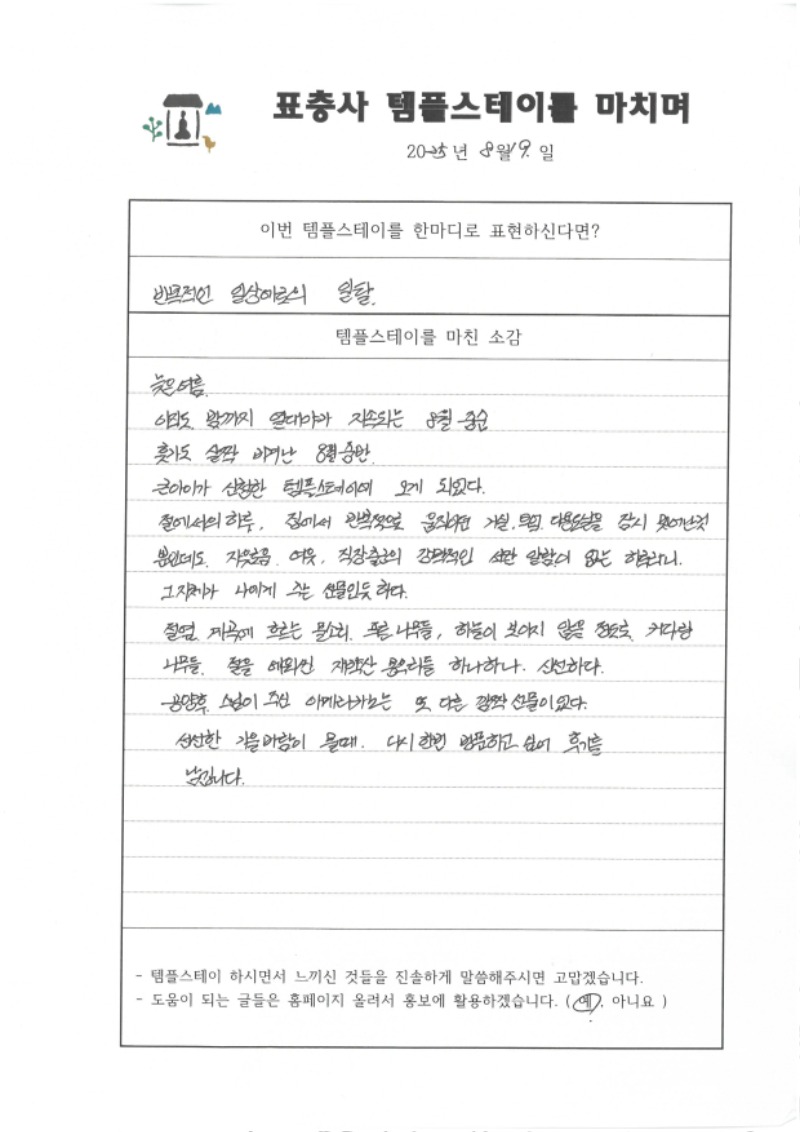 표충사 템플스테이를 마치며
2025년 8월19.일
이번 템플스테이를 한마디로 표현하신다면?
반복적인 일상에로의 일탈.
템플스테이를 마친 소감
늦은여름.
아직도 밤까지 열대야가 지속되는 8월 중순
휴가도 살짝 비켜난 8월중반.
큰아이가 신청한 템플스테이에 오게 되었다.
절에서의 하루, 집에서 반복적으로 움직이던 거실, 다용도실을 잠시 벗어난것
뿐인데도. 직장 강박적인 없는 하루라니.
그자체가 나에게 주는 선물인듯 하다.
절옆 계곡에 흐르는 물소리. 푸른나무들, 하늘이 보이지 않을 정도로 커다란
나무들. 절을 에워싼 재약산 봉우리들 하나하나. 신선하다.
공양후 스님이 주신 아메리카노는 또 다른 깜짝선물이었다.
선선한 가을바람이 불때. 다시한번 방문하고 싶어 후기를
남깁니다.
- 템플스테이 하시면서 느끼신 것들을 진솔하게 말씀해주시면 고맙겠습니다.
- 도움이 되는 글들은 홈페이지 올려서 홍보에 활용하겠습니다. ( 예, 아니요 )